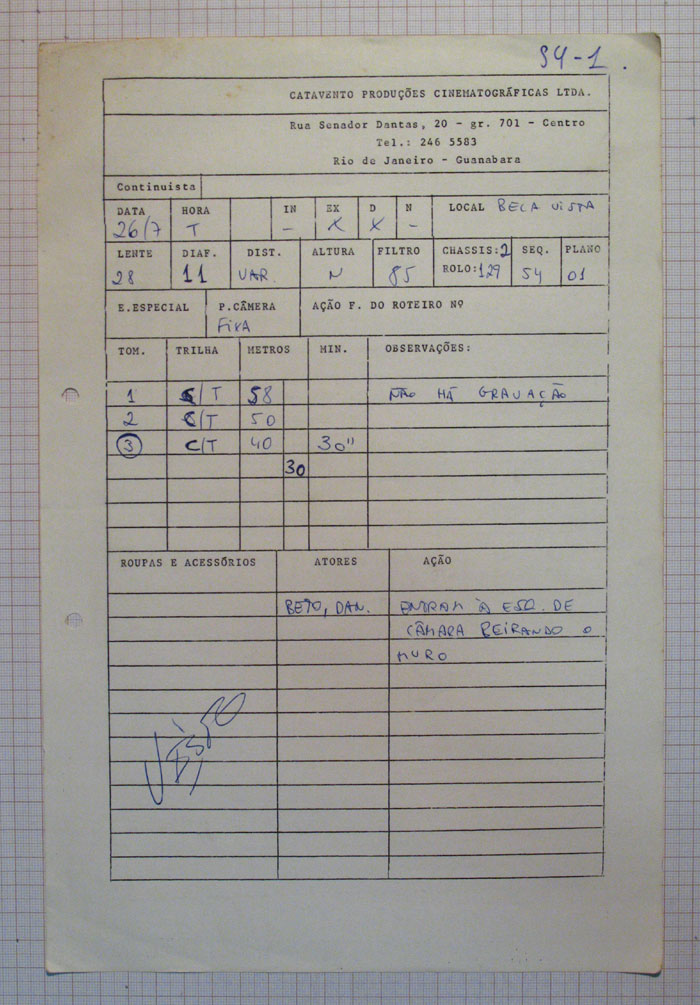 54-1.
CATAVENTO PRODUÇÕES CINEMATOGRÁFICAS LTDA.
Rua Senador Dantas, 20 - gr. 701 - Centro
Tel.: 246 5583
Rio de Janeiro - Guanabara
Continuista
DATA HORA IN EX D N LOCAL BELA VISTA
26/7 T - X X -
LENTE DIAF. DIST. ALTURA FILTRO CHASSIS: 2 SEQ. PLANO
28 11 VAR. N 85 ROLO: 129 54 01
E.ESPECIAL P.CÂMERA AÇÃO F. DO ROTEIRO Nº
FIXA
TOM. TRILHA METROS MIN. OBSERVAÇÕES:
1 C/T 58 NÃO HÁ GRAVAÇÃO
2 C/T 50
3 C/T 40 30"
30
ROUPAS E ACESSÓRIOS ATORES AÇÃO
BETO, DAN. ENTRAM À ESQ. DE
CÂMARA BEIRANDO O
MURO